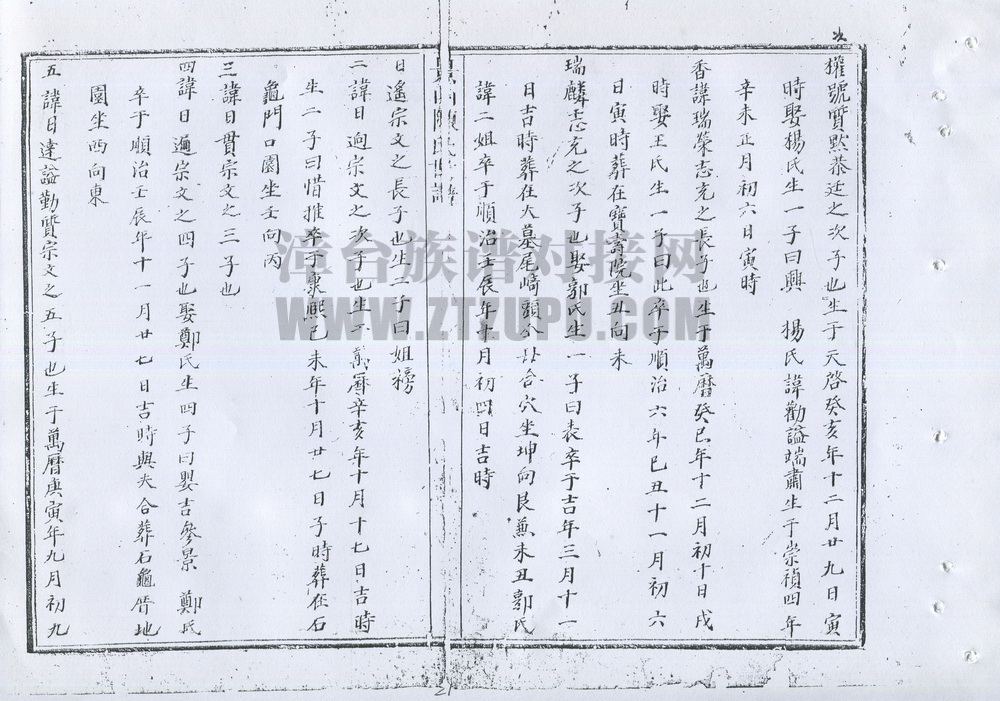 次
權號實默恭廷之次子也生于天啓癸亥年十二月廿九日寅
時娶楊氏生一子曰興 楊氏諱勸謚端肅生于崇禎四年
辛未正月初六日寅時
香諱瑞榮志充之長子也生于萬曆癸巳年十二月初十日戌
時娶王氏生一子曰此卒于順治六年巳丑十一月初六
日寅時葬在寶壽院坐丑向未
瑞麟志充之次子也娶郭氏生一子曰表卒于吉年三月十一
日吉時葬在大墓尾崎頭公共合穴坐坤向艮兼未丑郭氏
諱二姐卒于順治壬辰年十月初四日吉時
氏
日遙宗文之長子也生二子曰姐榜
二諱日逈宗文之次子也生于萬曆辛亥年十月十七日吉時
生二子曰惜推卒于康熙己未年十月廿七日子時葬在石
龜門口園坐壬向丙
三諱日貫宗文之三子也
四諱日遍宗文之四子也娶鄭氏生四子曰嬰吉參景 鄭氏
卒于順治壬辰年十一月廿七日吉時與夫合葬石龜厝地
園坐西向東
五諱日達謚勤質宗文之五子也生于萬曆庚寅年九月初九
21
漳台族谱对接网
WWW.ZTZUPU.COM